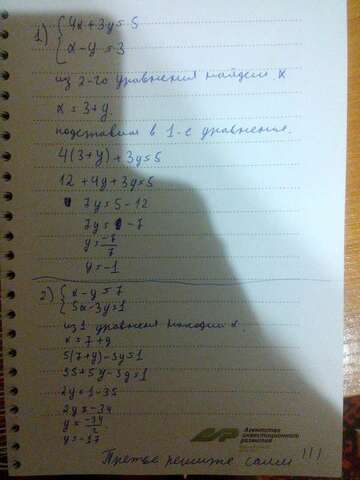 1) { 4x+3y=5
x-y=3
из 2-го уравнения найдем x
x=3+y
подставим в 1-е уравнение.
4(3+y)+3y=5
12+4y+3y=5
7y=5-12
7y=-7
y=-7/7
y=-1
2) { x-y=7
5x-3y=1
из 1 уравнения находим x.
x=7+y
5(7+y)-3y=1
35+5y-3y=1
2y=1-35
2y=-34
y=-34/2
y=-17
Агентство
инвестиционного
развития
Третье решите сами !!!